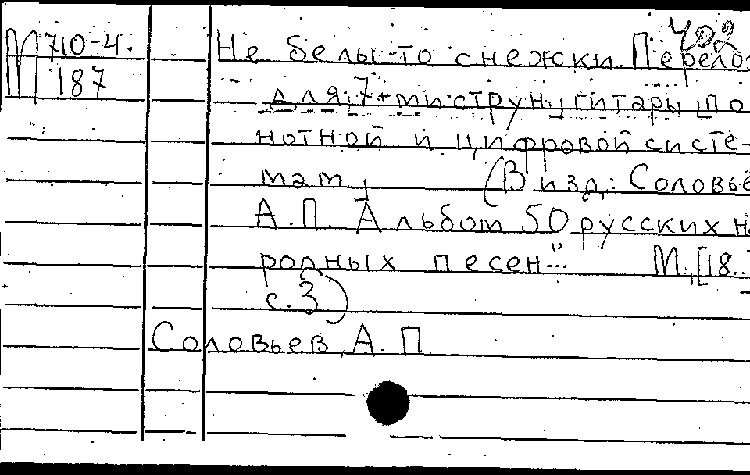 М 710-4.
187
402
Не белы-то снежки. Перело
для 7-ми струн. гитары по
нотной и цифровой систе-
мам, (В изд.: Соловье
А.П. Альбом 50 русских на
родных песен..." М., [18..
с. 3)
Соловьев, А. П.